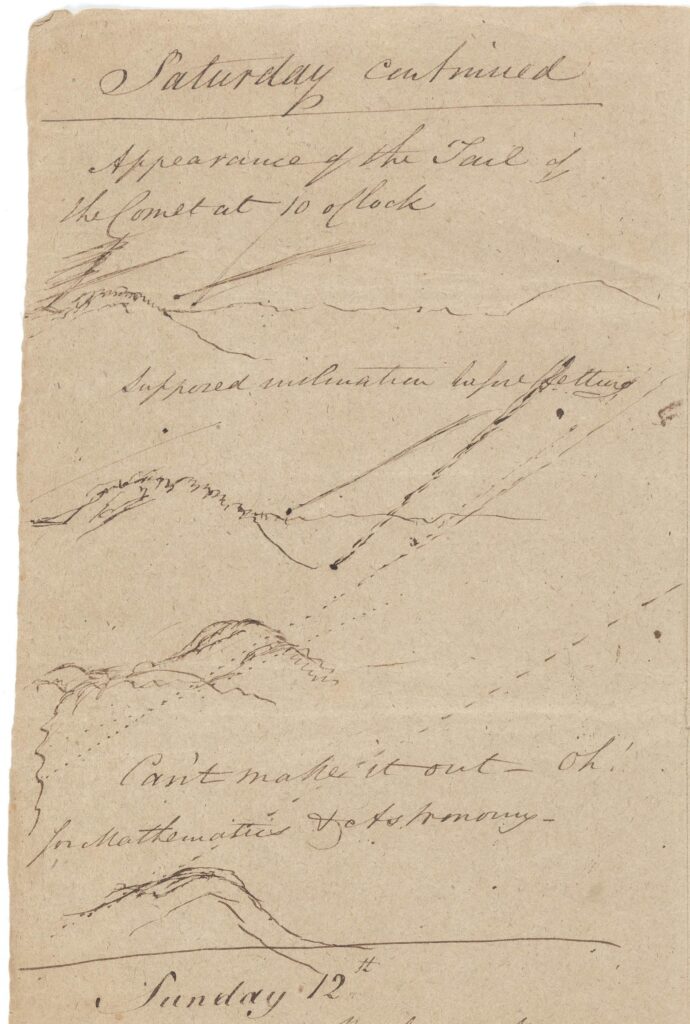 Saturday continued
Appearance of the Tail of
the Comet at 10 oClock
Supposed inclination before Setting
Can't make it out - Oh!
for Mathematics & Astronomy -
Sunday 12th